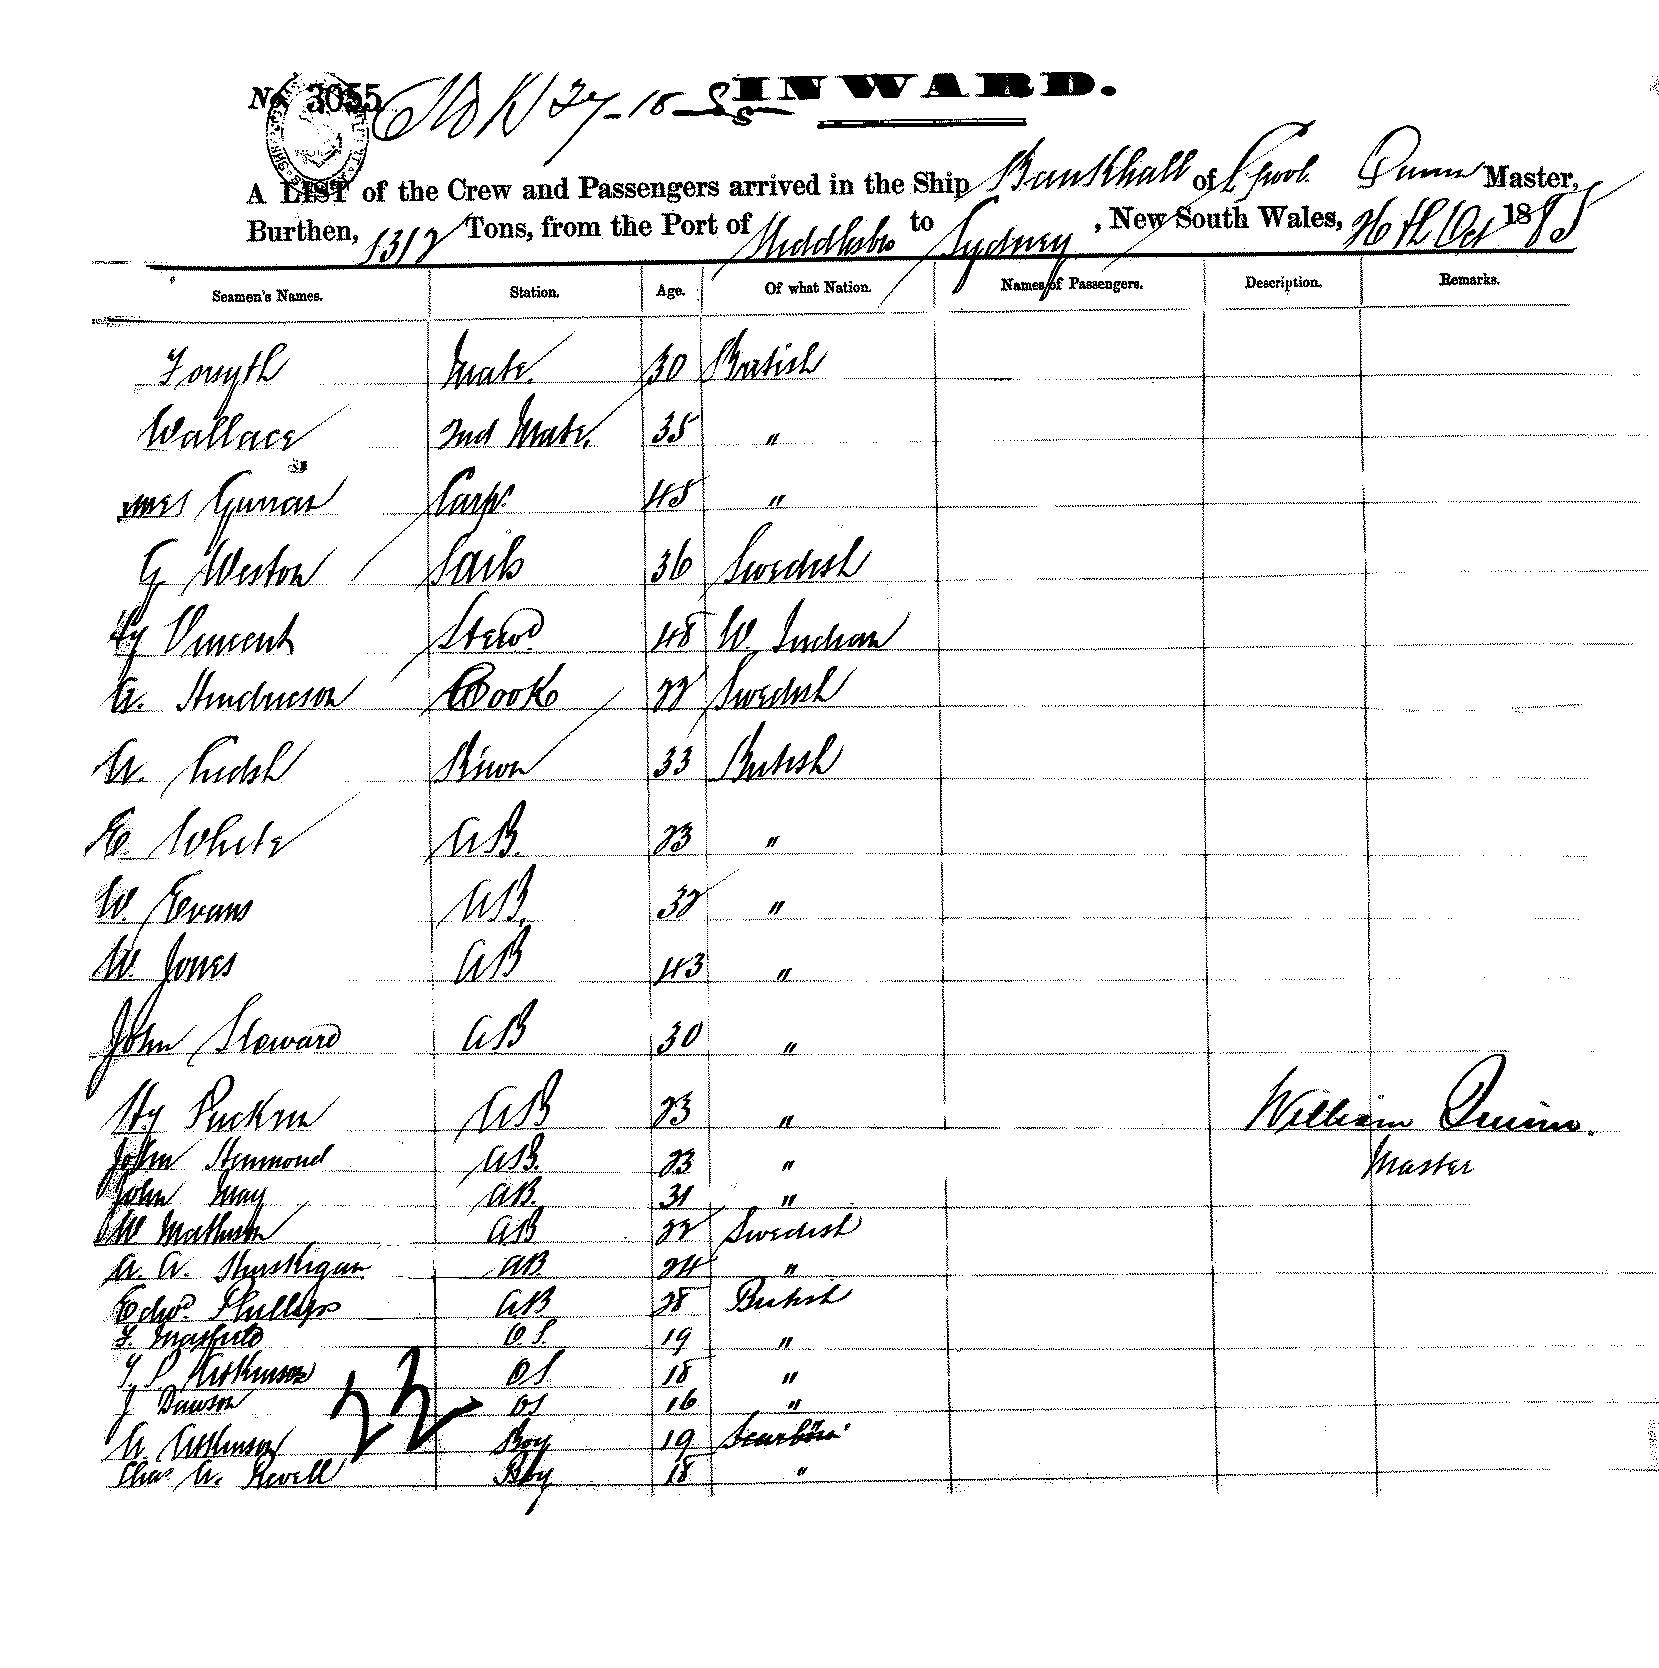 No. 3055 27-10-85 INWARD.
A LIST of the Crew and Passengers arrived in the Ship Bankhall of L'pool. Quinn Master,
Burthen, 1312 Tons, from the Port of Middlesbro to Sydney, New South Wales, 26th Oct 1885
Seamen's Names. Station. Age. Of what Nation. Names of Passengers. Description. Remarks.
Forsyth Mate. 30 British
Wallace 2nd Mate. 35 "
Carp. 45 "
G Weston Sails 36 Swedish
Hy Vincent Stewd 48 W. Indian
A. Hendricson Cook 22 Swedish
A. 33 British
E. White AB. 23 "
W. Evans AB. 32 "
W. Jones AB 43 "
John Steward AB 30 "
Hy AB 23 " William Quinn.
John Hammond AB. 23 " Master
John May AB. 31 "
W Mathison AB 22 Swedish
A. A. AB 24 "
Edwd. Phillips AB 28 British
F. OS. 19 "
T. P. Atkinson OS 18 "
J Dawson OS 16 "
22
A. Atkinson Boy 19
Chas. A. Revell Boy 18 "